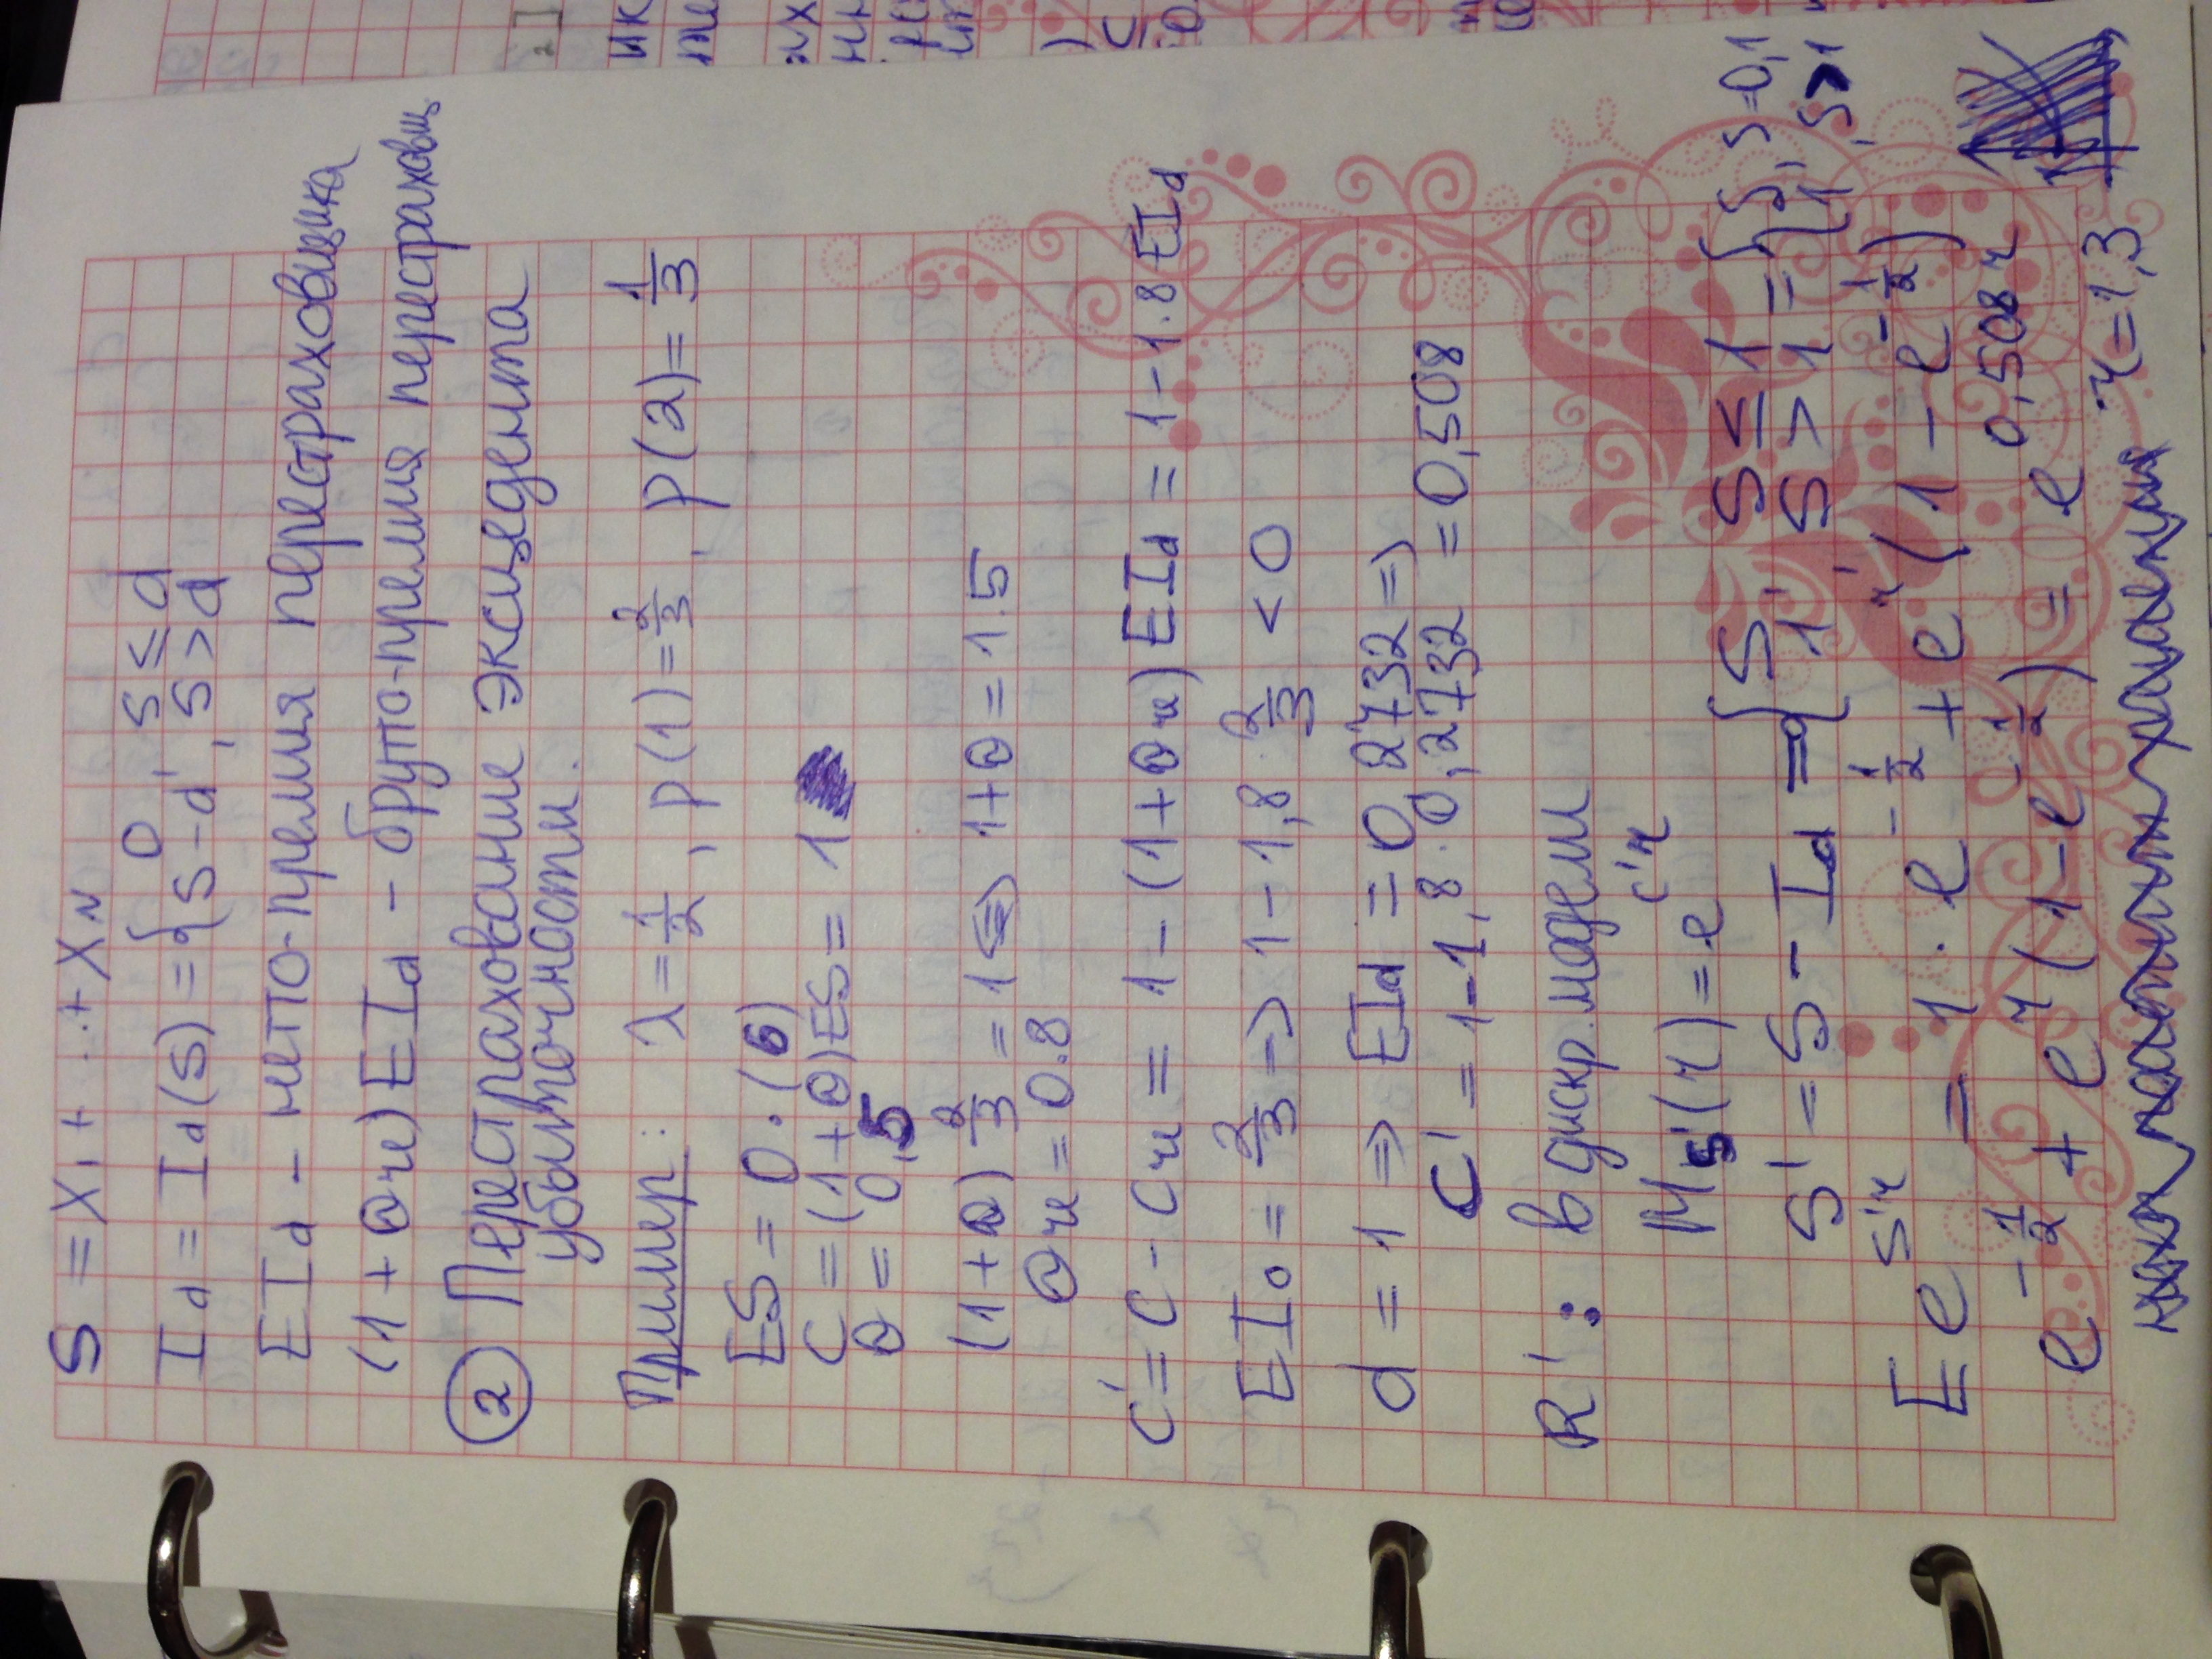 S = X₁ + ..+ X_N
I_d = I_d(S) = { 0 , S ≤ d
S-d , S > d
EI_d - нетто-премия перестраховщика
(1+Θ_re)EI_d - брутто-премия перестраховщ.
② Перестрахование эксцедента
убыточности.
Пример: λ = 1/2 , p(1) = 2/3 , p(2) = 1/3
ES = 0.(6)
C = (1+Θ)ES = 1
Θ = 0,5
(1+Θ) 2/3 = 1 ⇔ 1+Θ = 1.5
Θ_re = 0.8
C' = C - C_re = 1 - (1+Θ_re)EI_d = 1 - 1.8 EI_d
EI₀ = 2/3 → 1 - 1,8 · 2/3 < 0
d = 1 ⇒ EI_d = 0,2732 ⇒
C' = 1-1,8 · 0,2732 = 0,508
R' : в дискр. модели
M_S'(r) = e^{C'r}
S' = S - I_d = { S , S ≤ 1 = { S , S=0,1
1 , S > 1 { 1 , S>1
Ee^{S'r} = 1 · e^{-1/2} + e^r (1 - e^{-1/2})
e^{-1/2} + e^r (1-e^{-1/2}) = e^{0,508 r}
r = 1,3